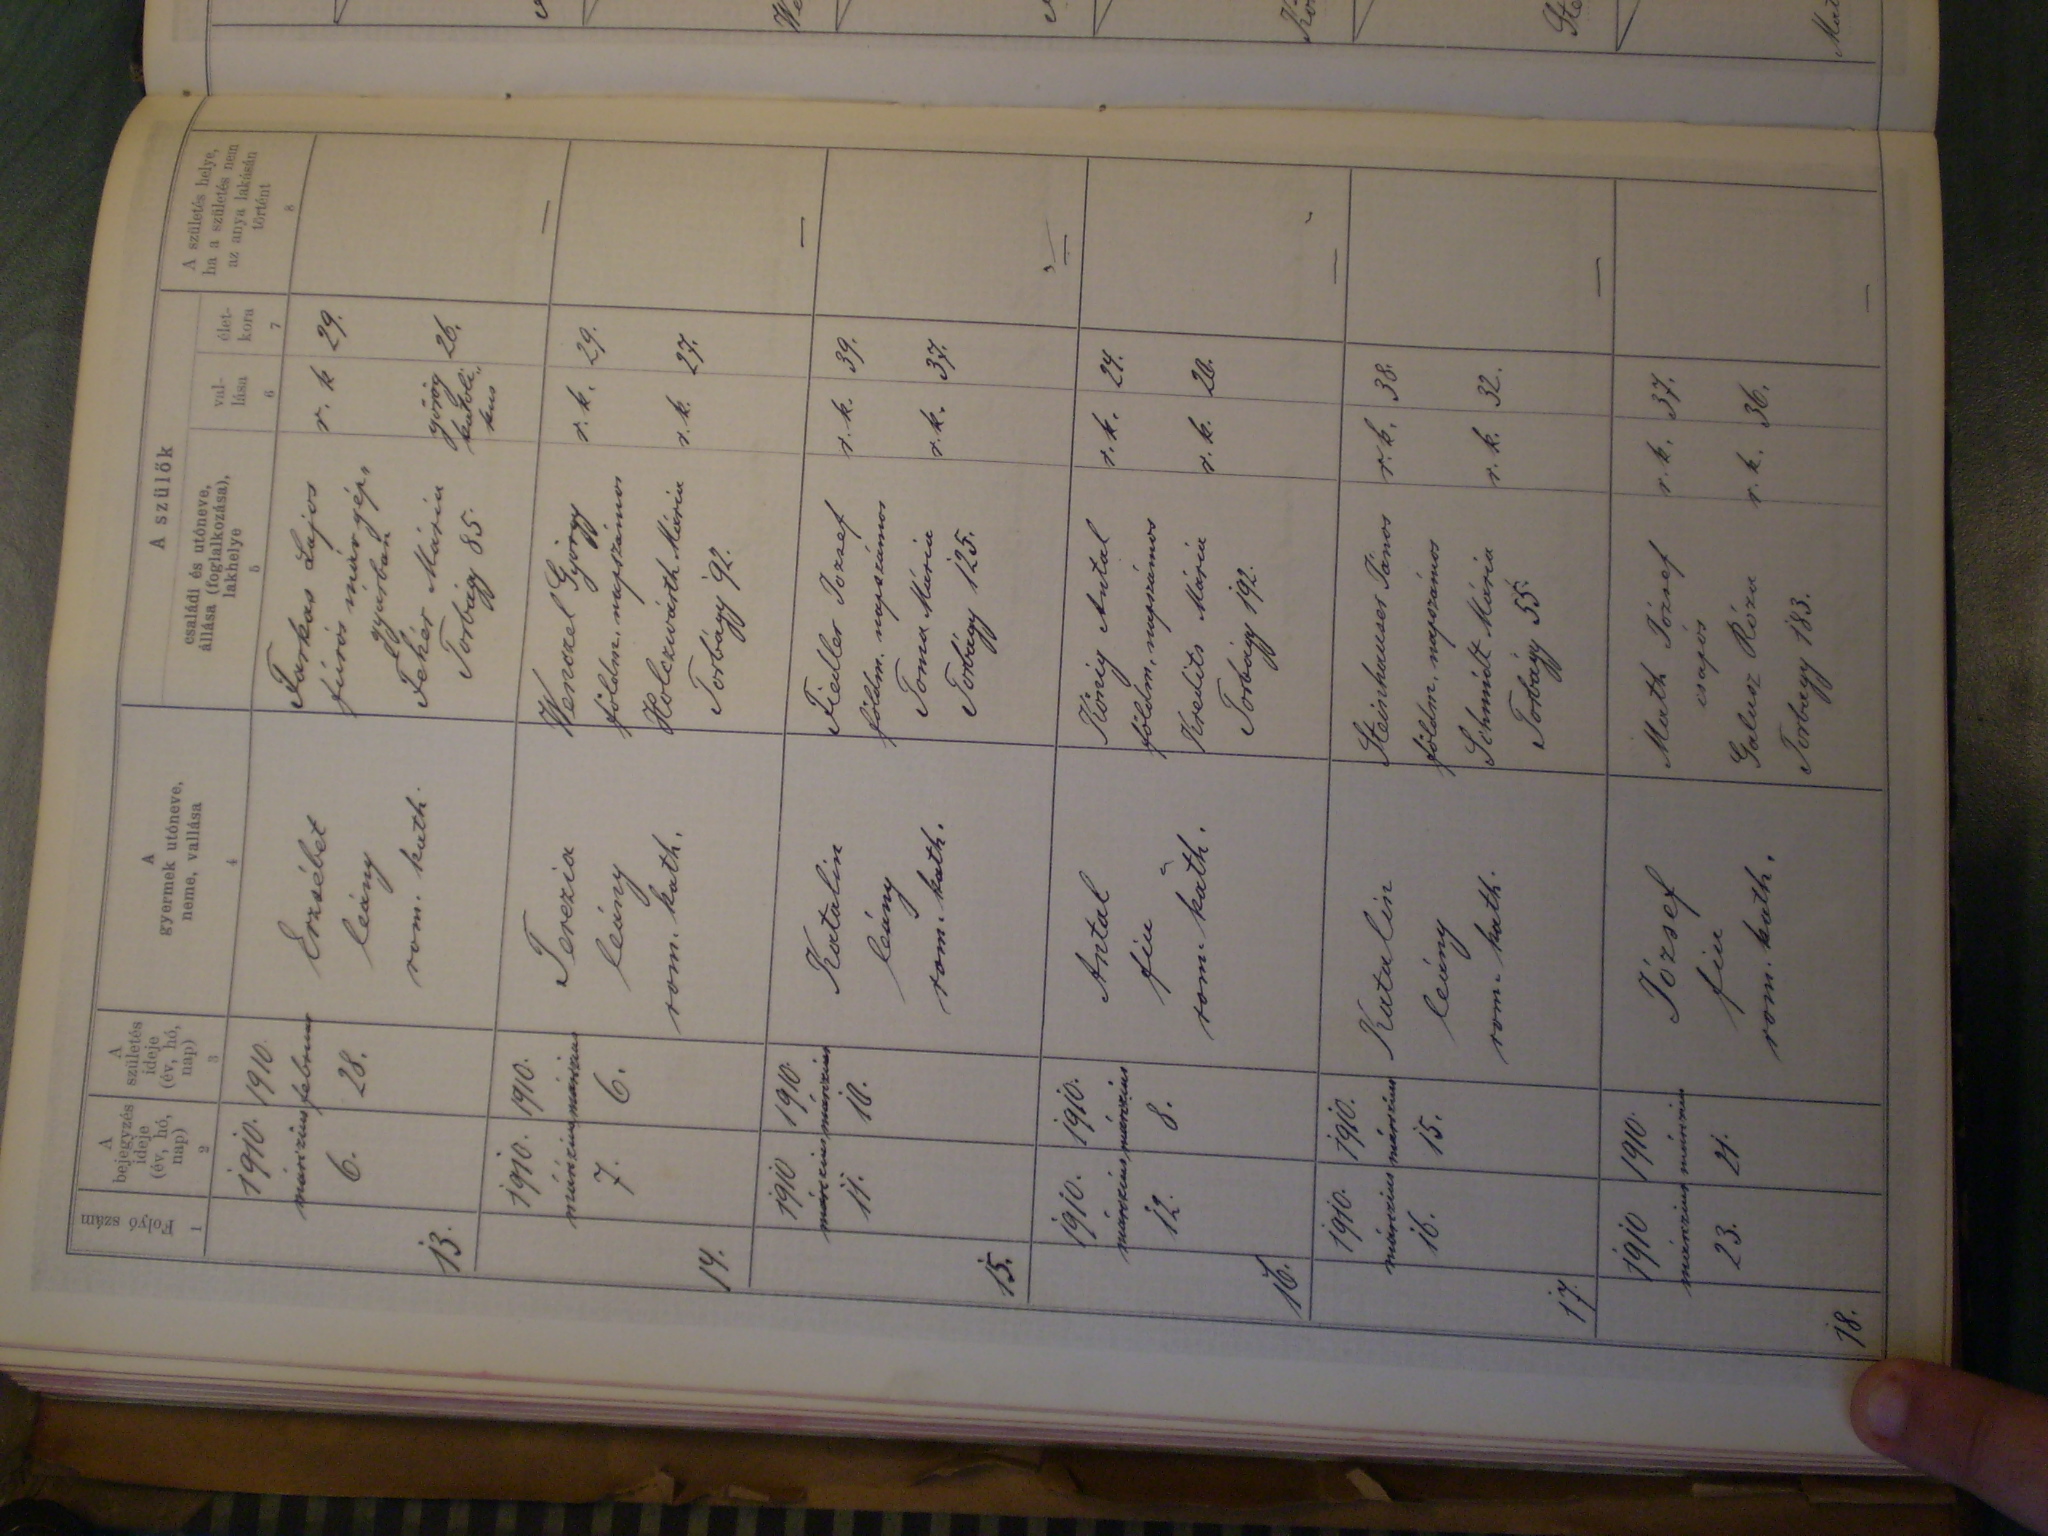 Folyó szám
A
bejegyzés
ideje
(év, hó,
nap)
A
születés
ideje
(év, hó,
nap)
A
gyermek utóneve,
neme, vallása
A szülők
családi és utóneve,
állása (foglalkozása),
lakhelye
val-
lása
élet-
kora
A születés helye,
ha a születés nem
az anya lakásán
történt
1
2
3
4
5
6
7
8
13.
1910.
márczius
6.
1910.
február
28.
Erzsébet
leány
rom. kath.
Farkas Lajos
fúrós mávgép-
gyárban
Fehér Mária
Torbágy 85.
r. k
29.
görög
katoli-
kus
26.
14.
1910.
márczius
7.
1910.
márczius
6.
Terezia
leány
rom. kath.
Wenczel György
földm. napszámos
Holczwarth Mária
Torbágy 92.
r. k.
29.
r. k.
27.
15.
1910
márczius
11.
1910.
márczius
10.
Katalin
leány
rom. kath.
Fiedler József
földm. napszámos
Toma Mária
Torbágy 125.
r. k.
39.
r. k.
37.
16.
1910.
márczius
12.
1910.
márczius
8.
Antal
fiu
rom. kath.
König Antal
földm. napszámos
Kredits Mária
Torbágy 192.
r. k.
24.
r. k.
20.
17.
1910.
márczius
16.
1910.
márczius
15.
Katalin
leány
rom. kath.
Steinhauser János
földm. napszámos
Schmidt Mária
Torbágy 55.
r. k.
38.
r. k.
32.
18.
1910
márczius
23.
1910.
márczius
21.
József
fiu
rom. kath.
Math József
csapós
Galusz Róza
Torbágy 183.
r. k.
37.
r. k.
36.